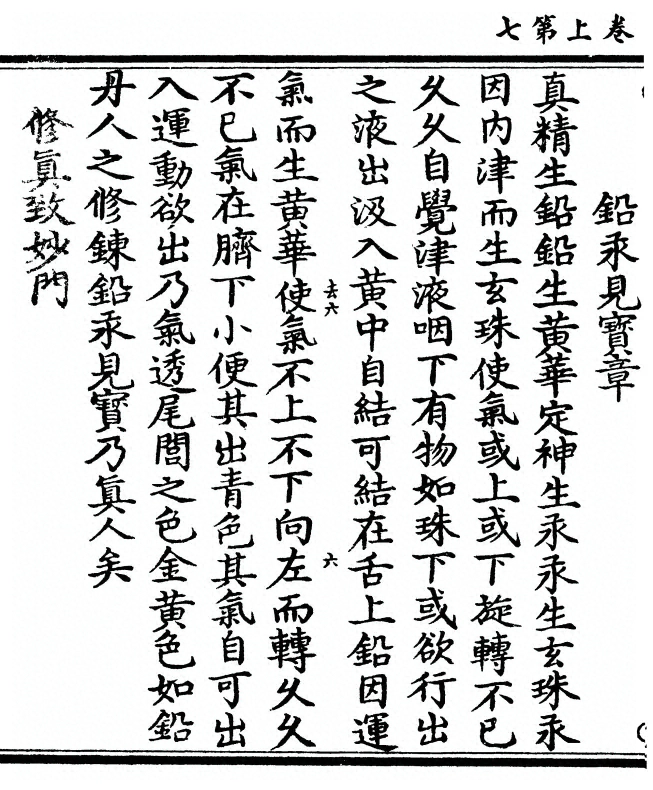 卷上第七
鉛汞見寶章
真精生鉛鉛生黃華定神生汞汞生玄珠汞
因內津而生玄珠使氣或上或下旋轉不已
久久自覺津液咽下有物如珠下或欲行出
之液出汲入黃中自結可結在舌上鉛因運
氣而生黃華使氣不上不下向左而轉久久
去六
六
不已氣在臍下小便其出青色其氣自可出
入運動欲出乃氣透尾閭之色金黃色如鉛
丹人之修鍊鉛汞見寶乃真人矣
修真致妙門